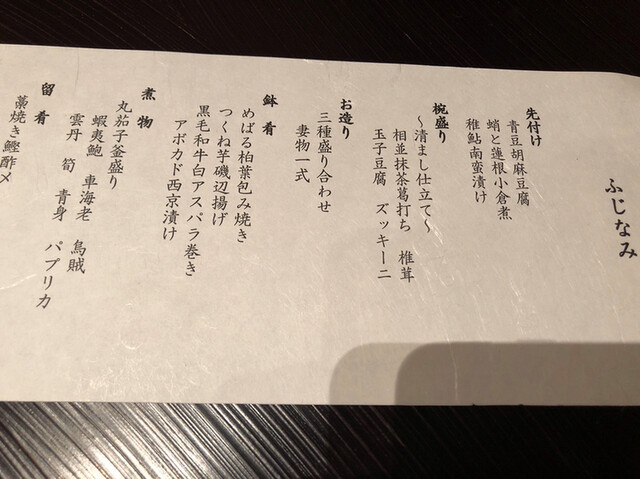 ふじなみ
先付け
青豆胡麻豆腐
蛸と蓮根小倉煮
稚鮎南蛮漬け
椀盛り
～清まし仕立て～
相並抹茶葛打ち 椎茸
玉子豆腐 ズッキーニ
お造り
三種盛り合わせ
妻物一式
鉢肴
めばる柏葉包み焼き
つくね芋磯辺揚げ
黒毛和牛白アスパラ巻き
アボカド西京漬け
煮物
丸茄子釜盛り
蝦夷鮑 車海老 烏賊
雲丹 筍 青身 パプリカ
留肴
藁焼き鰹酢〆